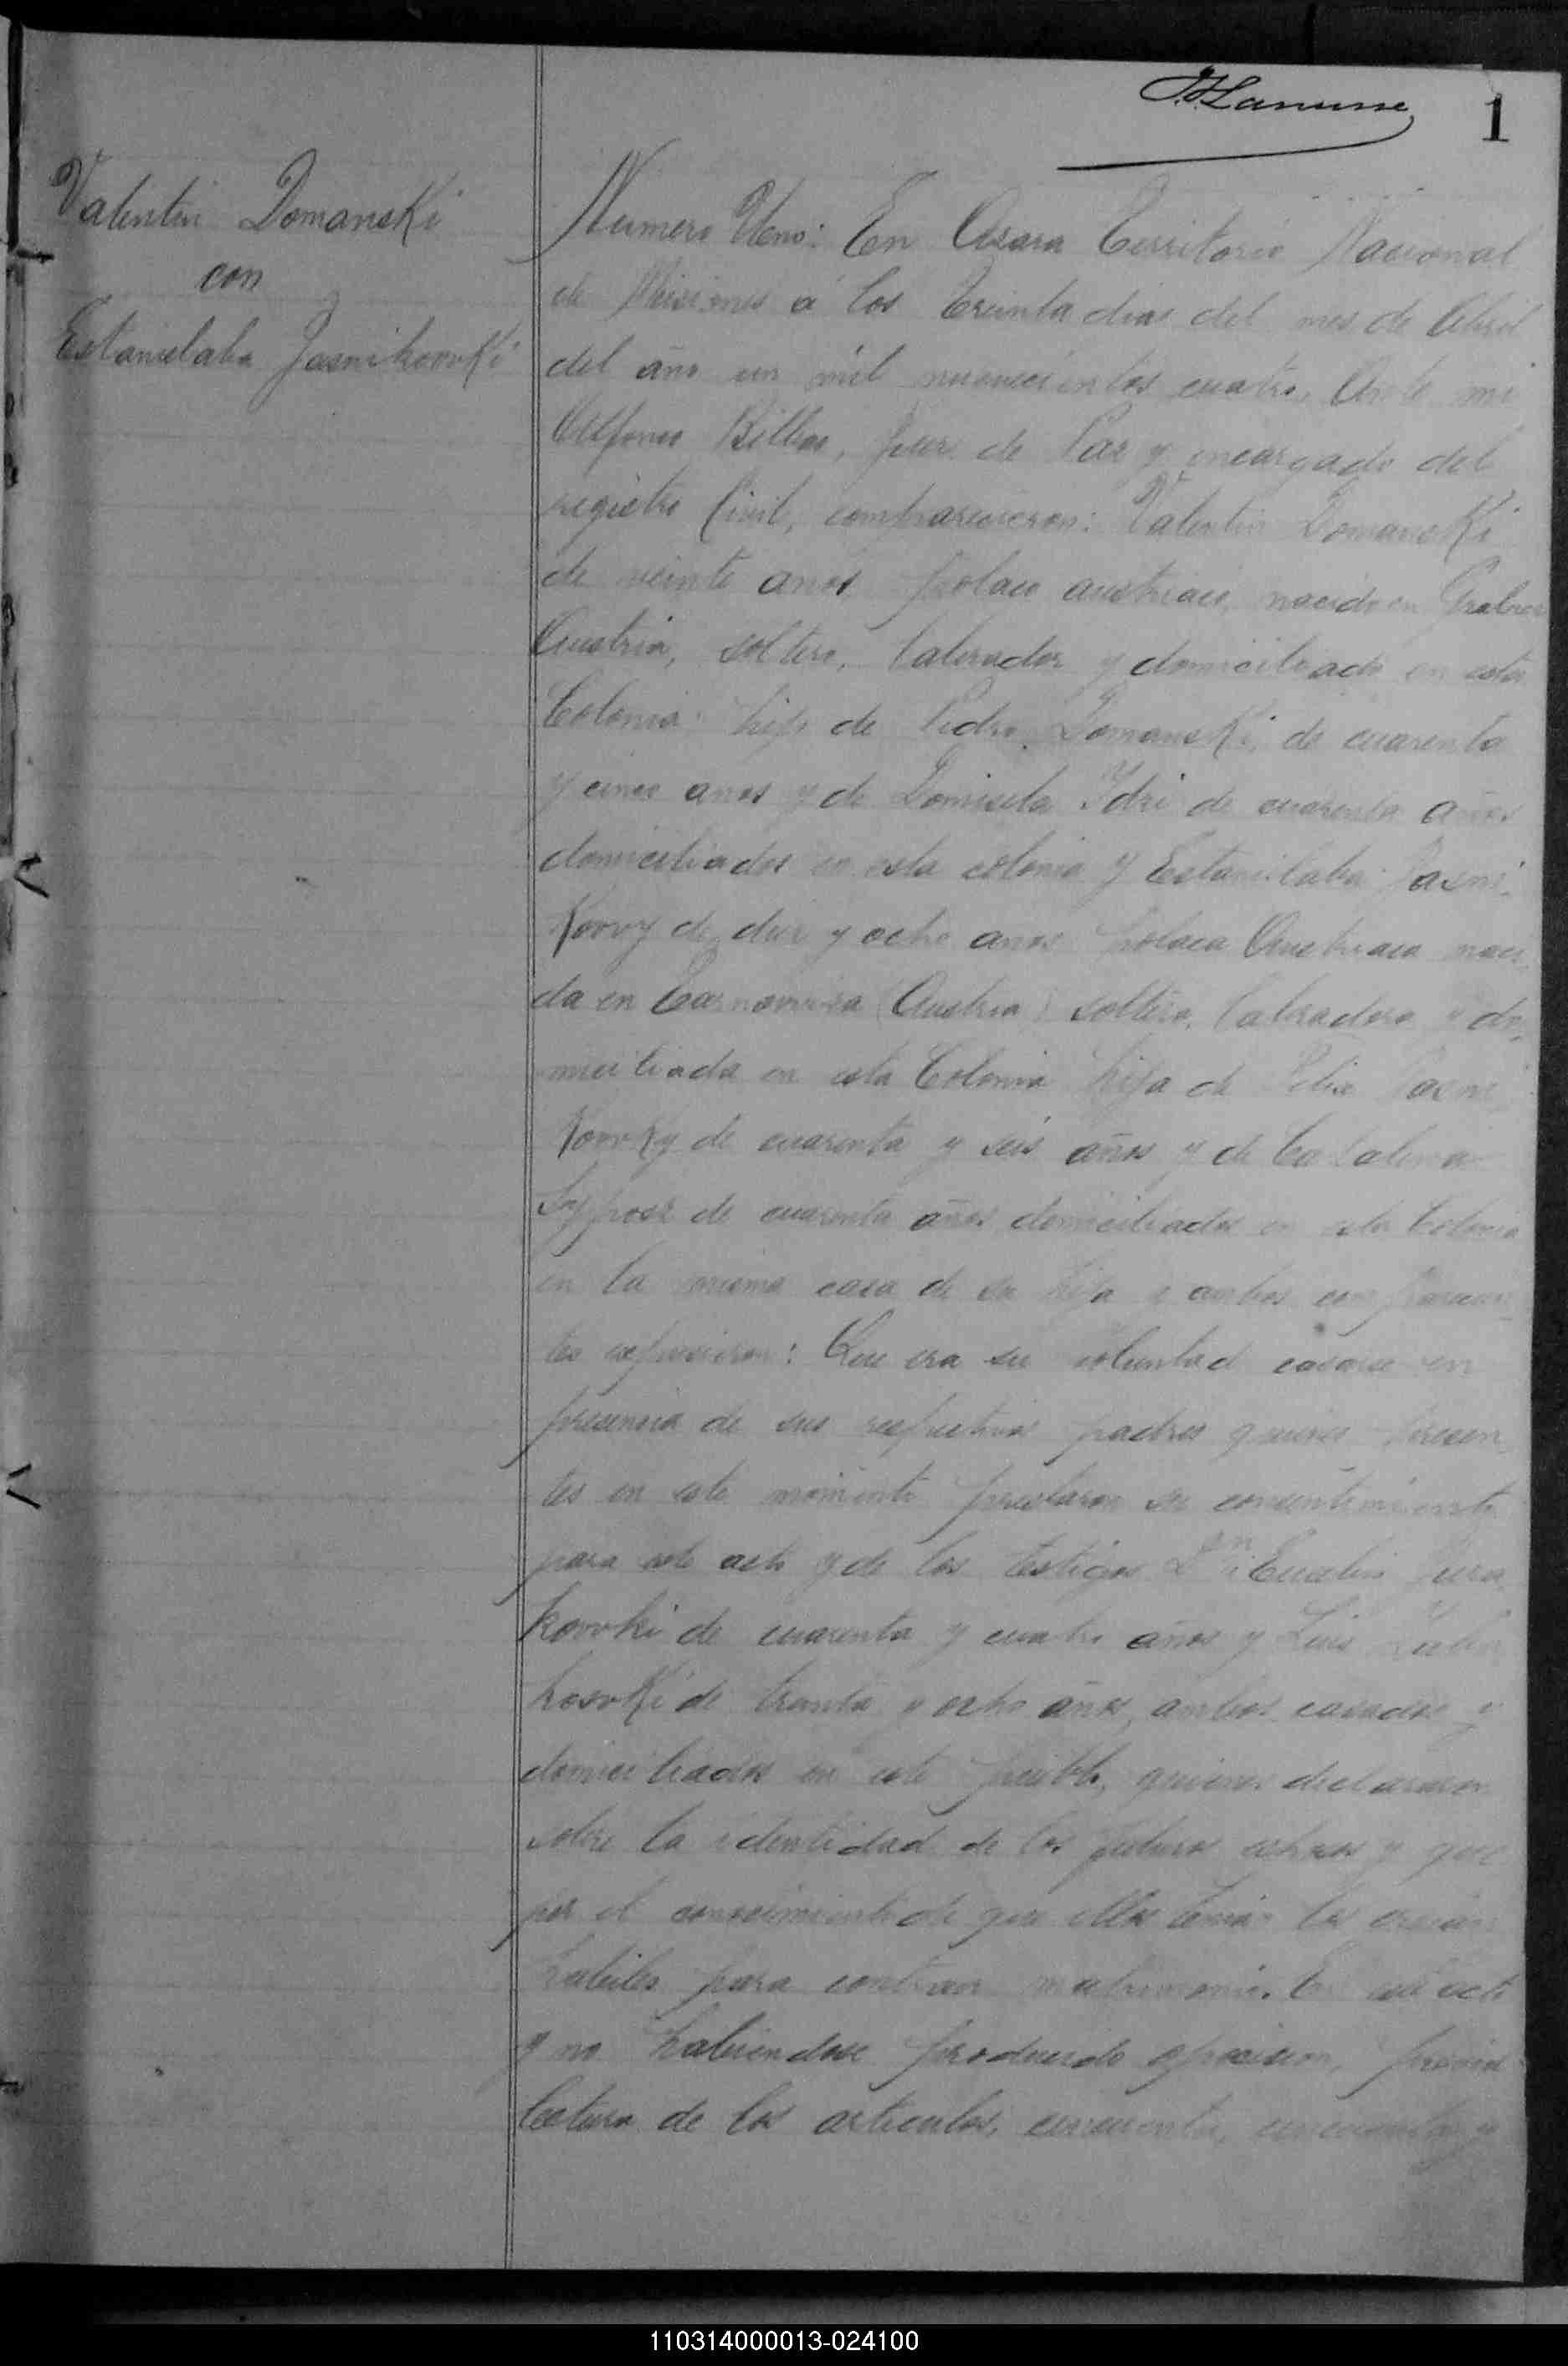 J. J. Lanusse
1
Valentin Domanski
con
Estanislaba Jasnikowski
Numero Uno: En Azara Territorio Nacional
de Misiones á los treinta dias del mes de Abril
del año un mil nuevecientos cuatro, Ante mi
Alfonso Billas, Juez de Paz y encargado del
registro Civil, comparecieron: Valentin Domanski
de veinte anos polaco austriaco, nacido en
Austria, soltero, labrador y domiciliado en esta
Colonia hijo de Pedro Domanski, de cuarenta
y cinco anos y de Domisela Idzi de cuarenta años
domiciliados en esta colonia y Estanislaba Jasni-
kowy de diez y ocho anos polaca Austriaca naci-
da en (Austria) soltera, labradora y do-
miciliada en esta Colonia hija de Felix Jasni
kowky de cuarenta y seis años y de Catalina
de cuarenta años domiciliados en esta Colonia
en la misma casa de su hija y ambos comparecien-
tes expusieron: Que era su voluntad casarse en
presencia de sus respectivos padres quienes presen-
tes en este momento prestaron su consentimiento
para este acto y de los testigos Don
kowki de cuarenta y cuatro años y Luis
kowki de treinta y ocho años, ambos casados y
domiciliados en este pueblo, quienes declararon
sobre la identidad de los futuros esposos y que
por el conocimiento de que ellos tenian los creian
habiles para contraer matrimonio. En este acto
y no habiendose producido oposicion, previa
lectura de los articulos, cincuenta, cincuenta y
110314000013-024100